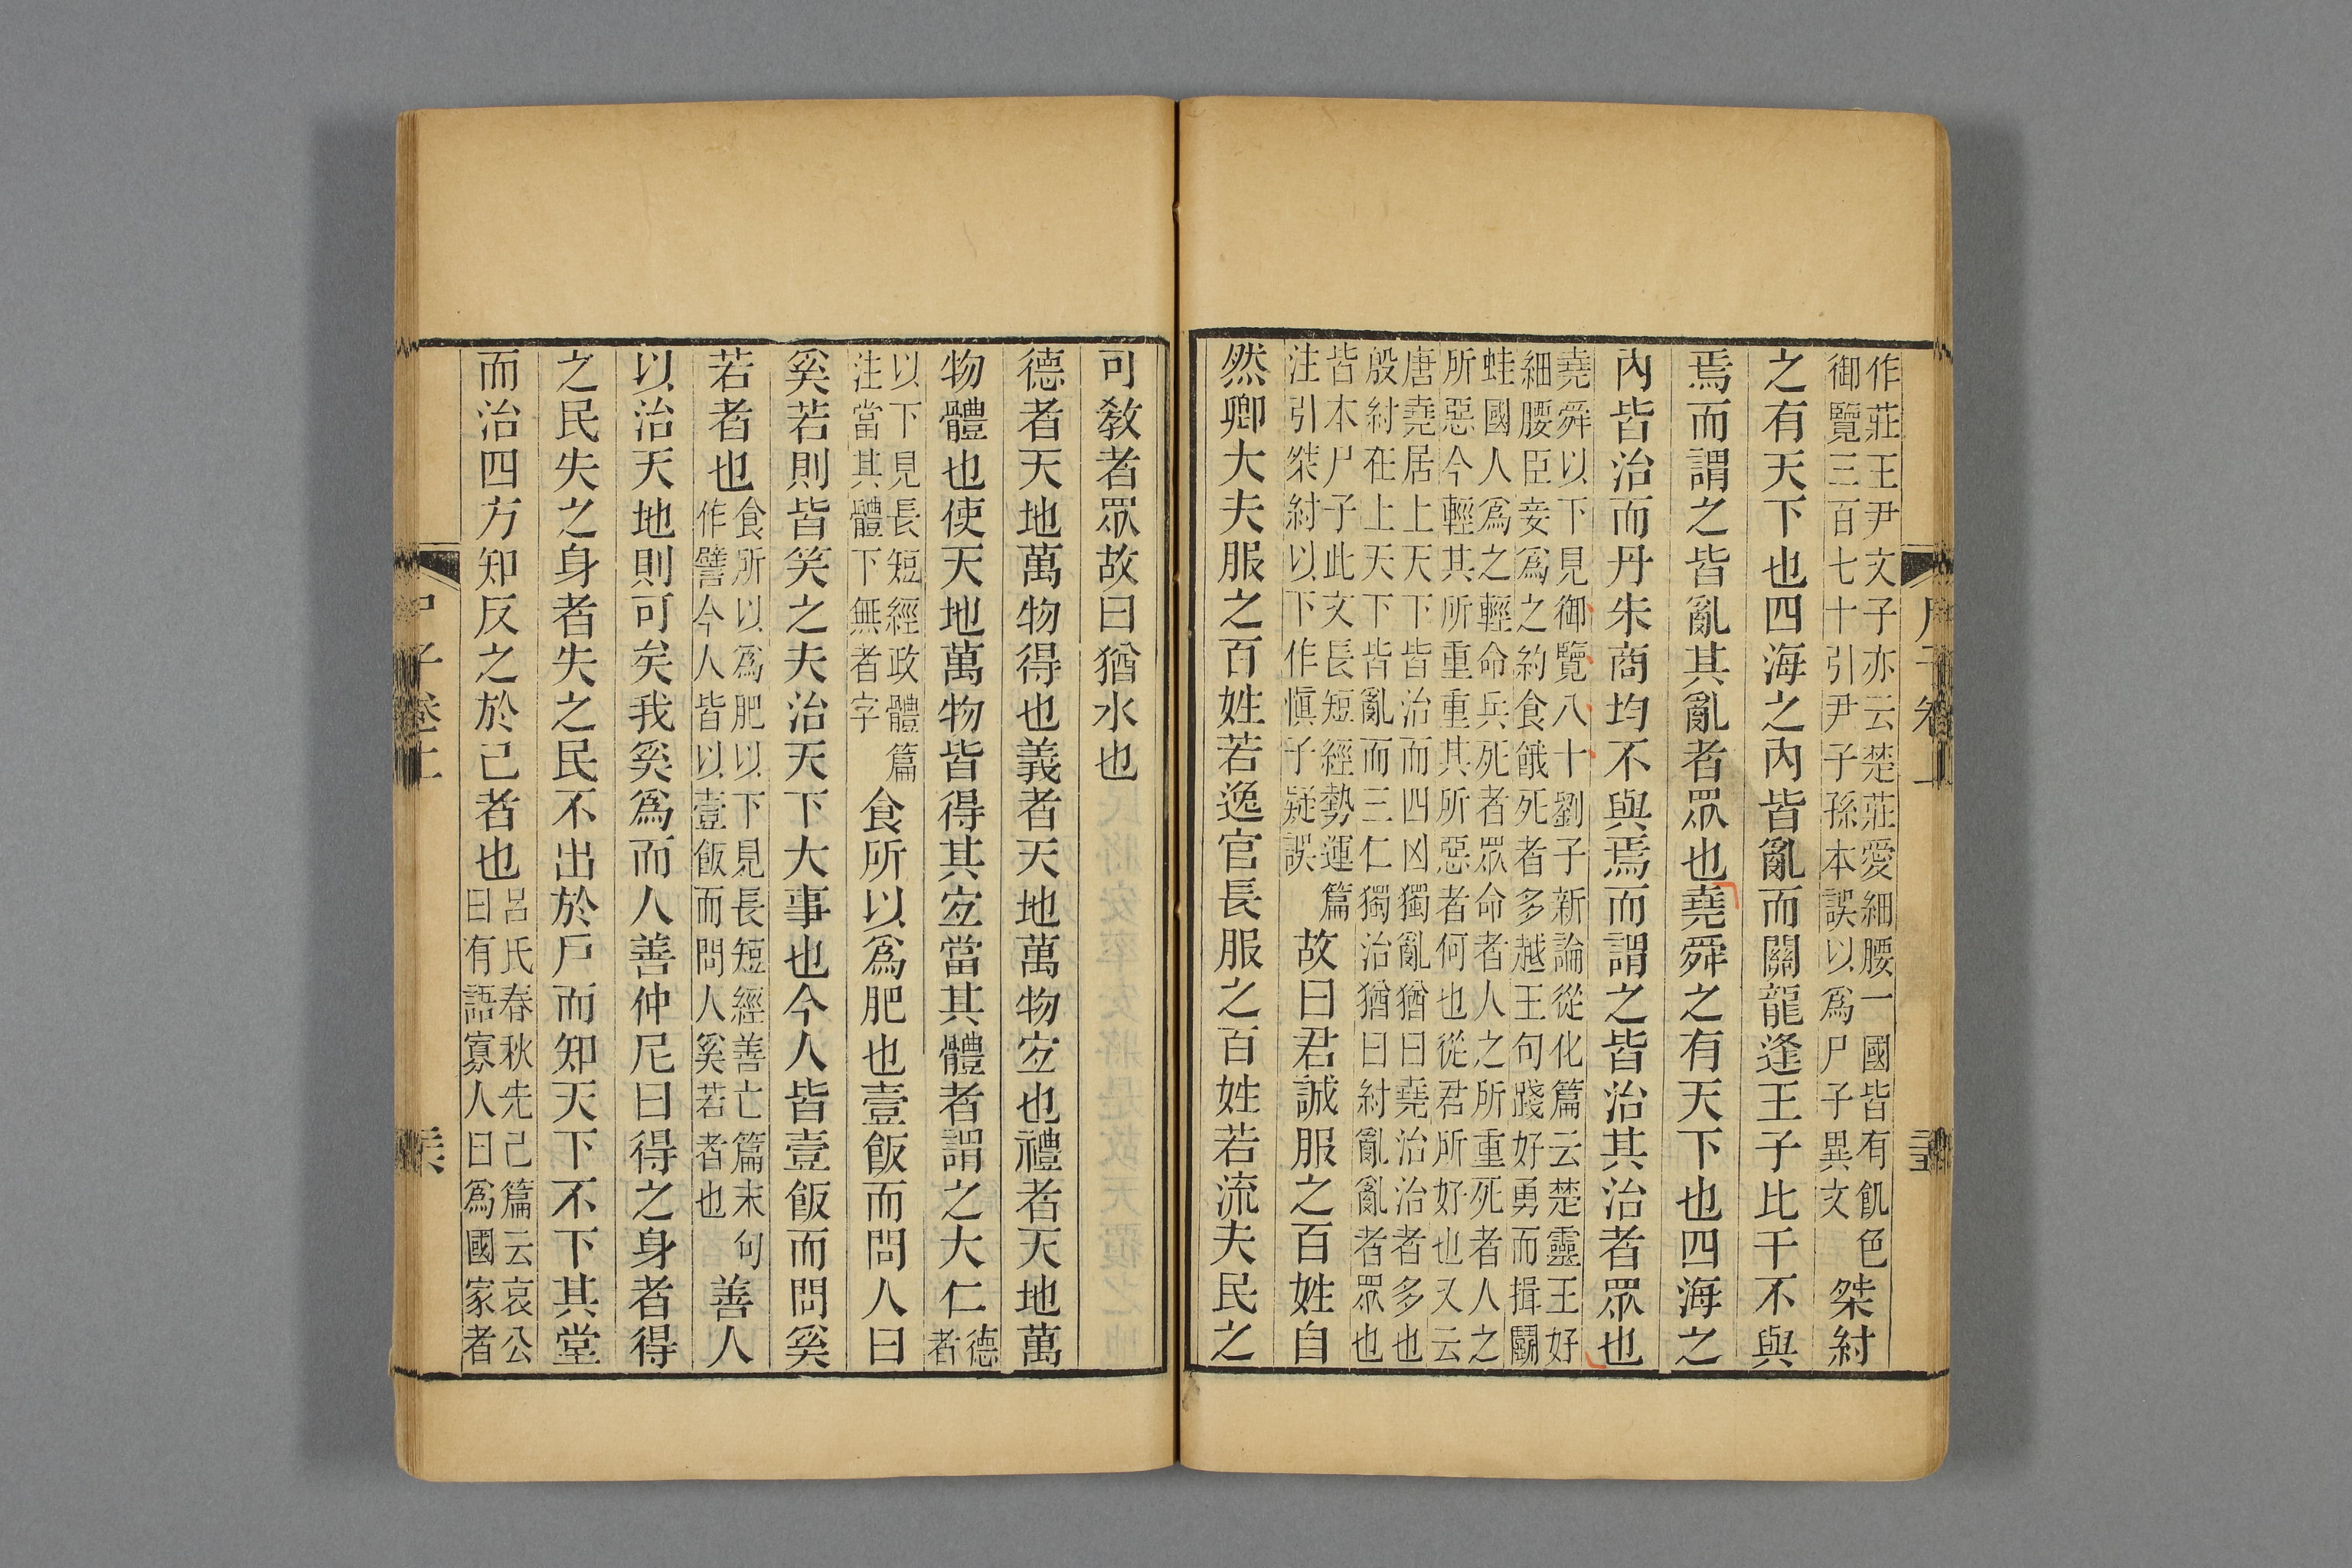 作莊王尹文子亦云楚莊愛細腰一國皆有飢色
御覽三百七十引尹子孫本誤以爲尸子異文
桀紂
之有天下也四海之內皆亂而關龍逢王子比干不與
焉而謂之皆亂其亂者眾也堯舜之有天下也四海之
內皆治而丹朱商均不與焉而謂之皆治其治者眾也
堯舜以下見御覽八十劉子新論從化篇云楚靈王好
細腰臣妾爲之約食餓死者多越王句踐好勇而揖鬬
蛙國人爲之輕命兵死者眾命者人之所重死者人之
所惡今輕其所重重其所惡者何也從君所好也又云
唐堯居上天下皆治而四凶獨亂猶曰堯治治者多也
殷紂在上天下皆亂而三仁獨治猶曰紂亂亂者眾也
皆本尸子此文長短經勢運篇
注引桀紂以下作愼子疑誤
故曰君誠服之百姓自
然卿大夫服之百姓若逸官長服之百姓若流夫民之
可敎者眾故曰猶水也
德者天地萬物得也義者天地萬物宐也禮者天地萬
物體也使天地萬物皆得其宐當其體者謂之大仁
德者
以下見長短經政體篇
注當其體下無者字
食所以爲肥也壹飯而問人曰
奚若則皆笑之夫治天下大事也今人皆壹飯而問奚
若者也
食所以爲肥以下見長短經善亡篇末句
作譬今人皆以壹飯而問人奚若者也
善人
以治天地則可矣我奚爲而人善仲尼曰得之身者得
之民失之身者失之民不出於戶而知天下不下其堂
而治四方知反之於己者也
呂氏春秋先己篇云哀公
曰有語寡人曰爲國家者
尸子卷上